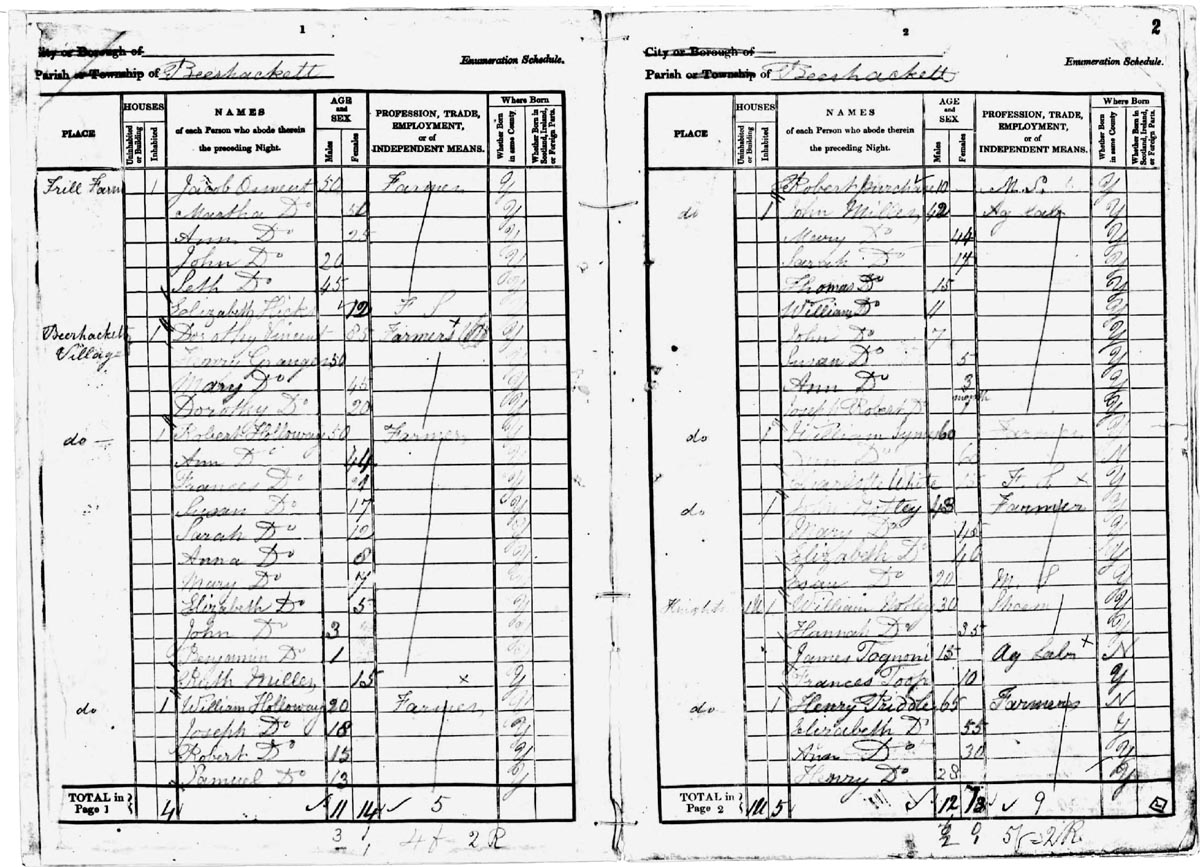 1
City or Borough of
Parish or Township of Beerhackett
Enumeration Schedule.
PLACE
HOUSES
Uninhabited or Building
Inhabited
NAMES
of each Person who abode therein
the preceding Night.
AGE
and
SEX
Males
Females
PROFESSION, TRADE,
EMPLOYMENT,
or of
INDEPENDENT MEANS.
Where Born
Whether Born in same County
Whether Born in Scotland, Ireland, or Foreign Parts.
Trill Farm 1 Jacob Osment 50 Farmer Y
Martha Do 50 Y
Ann Do 25 Y
John Do 20 Y
Seth Do 45 Y
Elizabeth Hicks 12 F S Y
Beerhackett 1 Dorothy Vincent 85 Farmers Y
Village
Henry Granger 50 Y
Mary Do 45 Y
Dorothy Do 20 Y
do 1 Robert Holloway 50 Farmer Y
Ann Do 44 Y
Frances Do 21 Y
Susan Do 17 Y
Sarah Do 12 Y
Anna Do 8 Y
Mary Do 7 Y
Elizabeth Do 5 Y
John Do 3 Y
Benjamin Do 1 Y
Ruth Miller 15 x Y
do 1 William Holloway 20 Farmer Y
Joseph Do 18 Y
Robert Do 15 Y
Samuel Do 13 Y
TOTAL in Page 1 4 11 14 5
3 1 2 R
2
2
City or Borough of
Parish or Township of Beerhackett
Enumeration Schedule.
PLACE
HOUSES
Uninhabited or Building
Inhabited
NAMES
of each Person who abode therein
the preceding Night.
AGE
and
SEX
Males
Females
PROFESSION, TRADE,
EMPLOYMENT,
or of
INDEPENDENT MEANS.
Where Born
Whether Born in same County
Whether Born in Scotland, Ireland, or Foreign Parts.
Robert Purchase 10 M. S. Y
do 1 John Miller 42 Ag Lab Y
Mary Do 44 Y
Sarah Do 17 Y
Thomas Do 15 Y
William Do 11 Y
John Do 7 Y
Susan Do 5 Y
Ann Do 3 Y
month
Joseph Robert Do Y
do 1 William 60 Farmer Y
Y
White F. S. x Y
do 1 Notley 43 Farmier Y
Mary Do 45 Y
Elizabeth Do 40 Y
20 M S Y
Knights 1 William Notley 30 Y
Hannah Do 35 Y
James Tognoni 15 Ag Labr x N
Frances Toop 10 Y
do 1 Henry Priddle 65 Farmers N
Elizabeth Do 55 Y
Ann Do 30 Y
Henry Do 28 Y
TOTAL in Page 2 5 12 13 9
2 R.